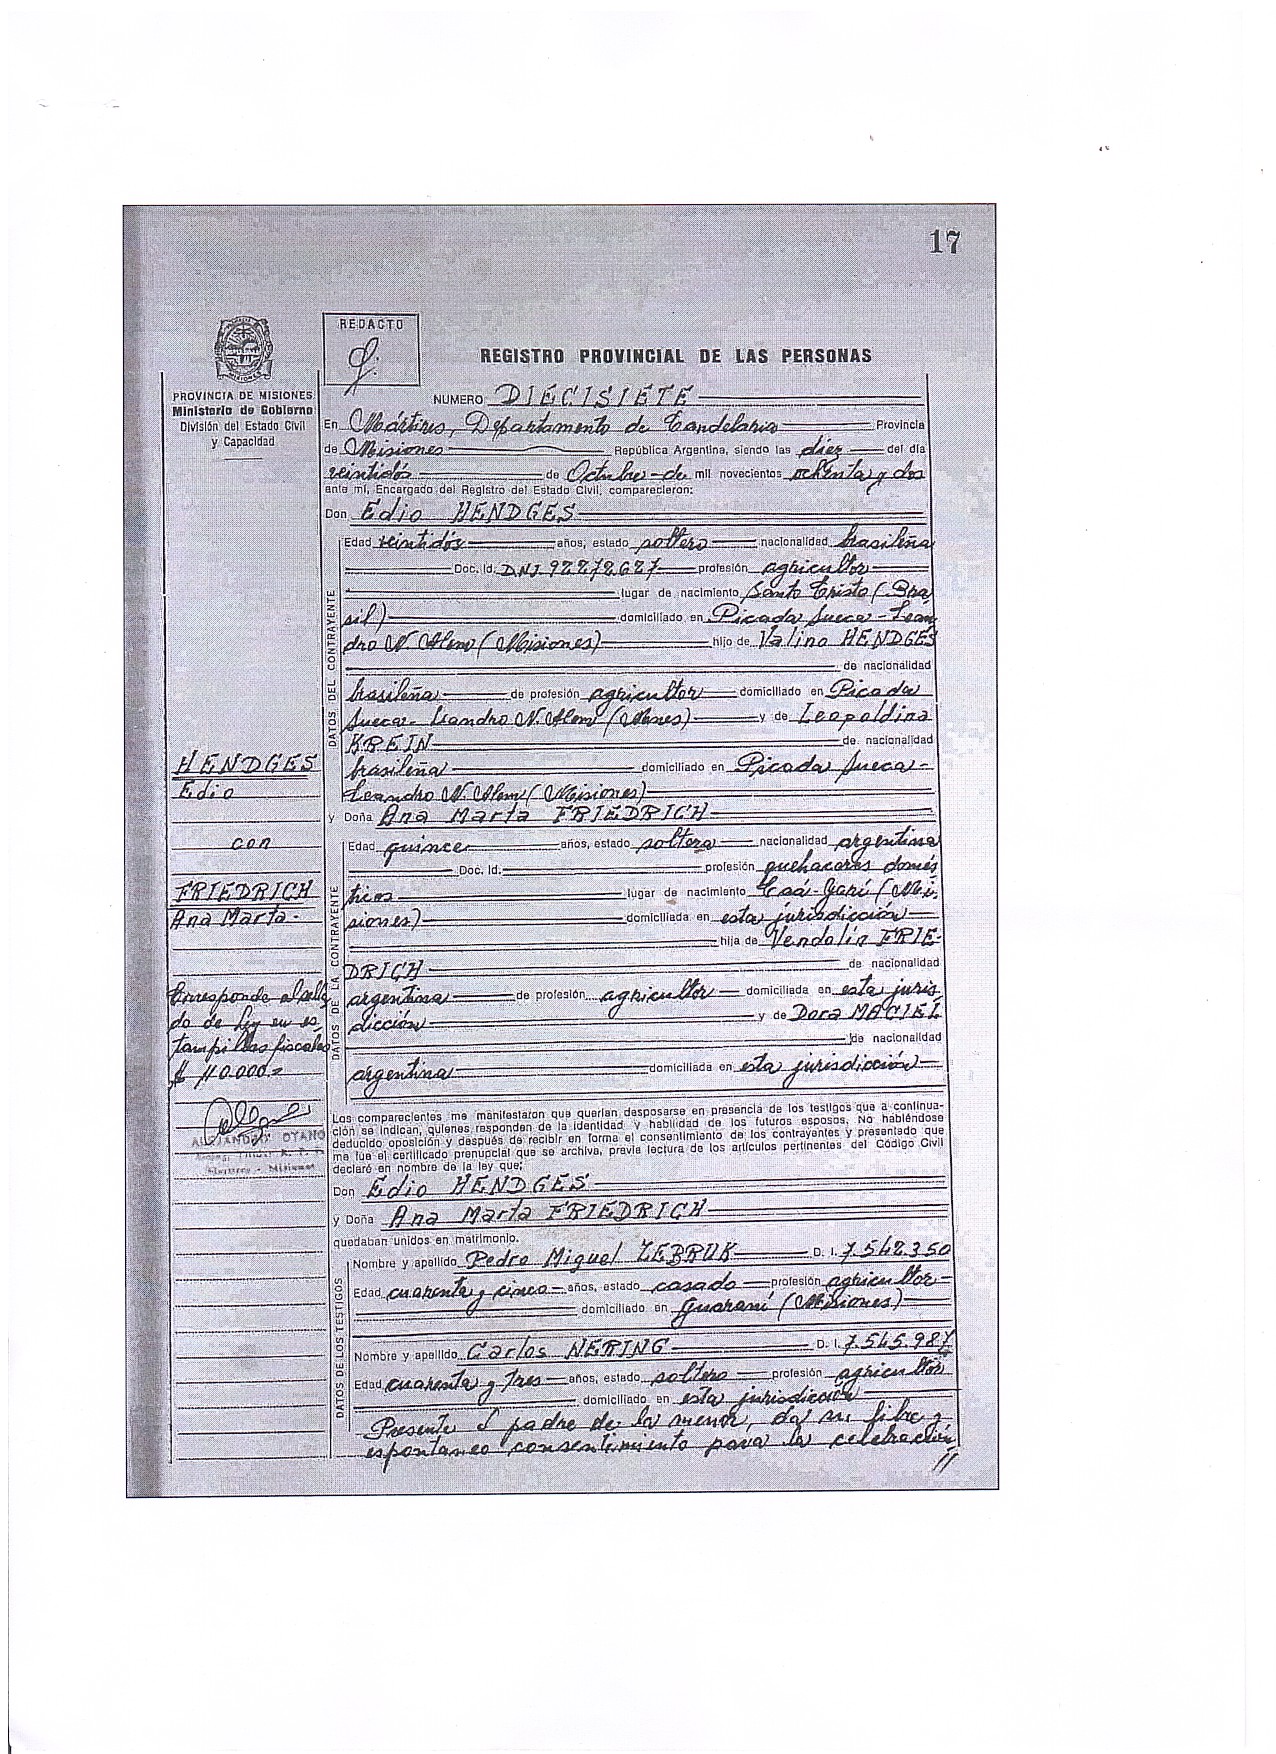 17
REDACTO
REGISTRO PROVINCIAL DE LAS PERSONAS
PROVINCIA DE MISIONES
Ministerio de Gobierno
División del Estado Civil
y Capacidad
NUMERO DIECISIETE
En Mártires, Departamento de Candelaria Provincia
de Misiones República Argentina, siendo las diez del día
veintidós de Octubre de mil novecientos ochenta y dos
ante mí, Encargado del Registro del Estado Civil, comparecieron:
Don Edio HENDGES
DATOS DEL CONTRAYENTE
Edad veintidós años, estado soltero nacionalidad brasileña
Doc. Id. DNI. 92272627 profesión agricultor
lugar de nacimiento Santo Cristo (Bra
sil) domiciliado en Picada Sueca - Lean
dro N. Alem (Misiones) hijo de Valino HENDGES
de nacionalidad
brasileña de profesión agricultor domiciliado en Picada
Sueca - Leandro N. Alem (Mnes) y de Leopoldina
KREIN de nacionalidad
brasileña domiciliado en Picada Sueca -
Leandro N. Alem (Misiones)
y Doña Ana Marta FRIEDRICH
DATOS DE LA CONTRAYENTE
Edad quince años, estado soltera nacionalidad argentina
Doc. Id. profesión quehaceres domés
ticos lugar de nacimiento Caá-Yarí (Mi
siones) domiciliada en esta jurisdicción
hija de Vendolin FRIE-
DRICH de nacionalidad
argentina de profesión agricultor domiciliada en esta juris
dicción y de Dora MACIEL
de nacionalidad
argentina domiciliada en esta jurisdicción
Los comparecientes me manifestaron que querían desposarse en presencia de los testigos que a continua-
ción se indican, quienes responden de la identidad y habilidad de los futuros esposos. No habiéndose
deducido oposición y después de recibir en forma el consentimiento de los contrayentes y presentado que
me fue el certificado prenupcial que se archiva, previa lectura de los artículos pertinentes del Código Civil
declaró en nombre de la ley que:
Don Edio HENDGES
y Doña Ana Marta FRIEDRICH
quedaban unidos en matrimonio.
DATOS DE LOS TESTIGOS
Nombre y apellido Pedro Miguel ZEBRUK D. I. 7.542.350
Edad cuarenta y cinco años, estado casado profesión agricultor
domiciliado en Guaraní (Misiones)
Nombre y apellido Carlos NERING D. I. 7.545.987
Edad cuarenta y tres años, estado soltero profesión agricultor
domiciliado en esta jurisdicción
Presente el padre de la menor, da su libre y
espontáneo consentimiento para la celebración
//
HENDGES
Edio
con
FRIEDRICH
Ana Marta -
Corresponde al sella
do de ley en es
tampillas fiscales
$ 110.000.=
OYANO